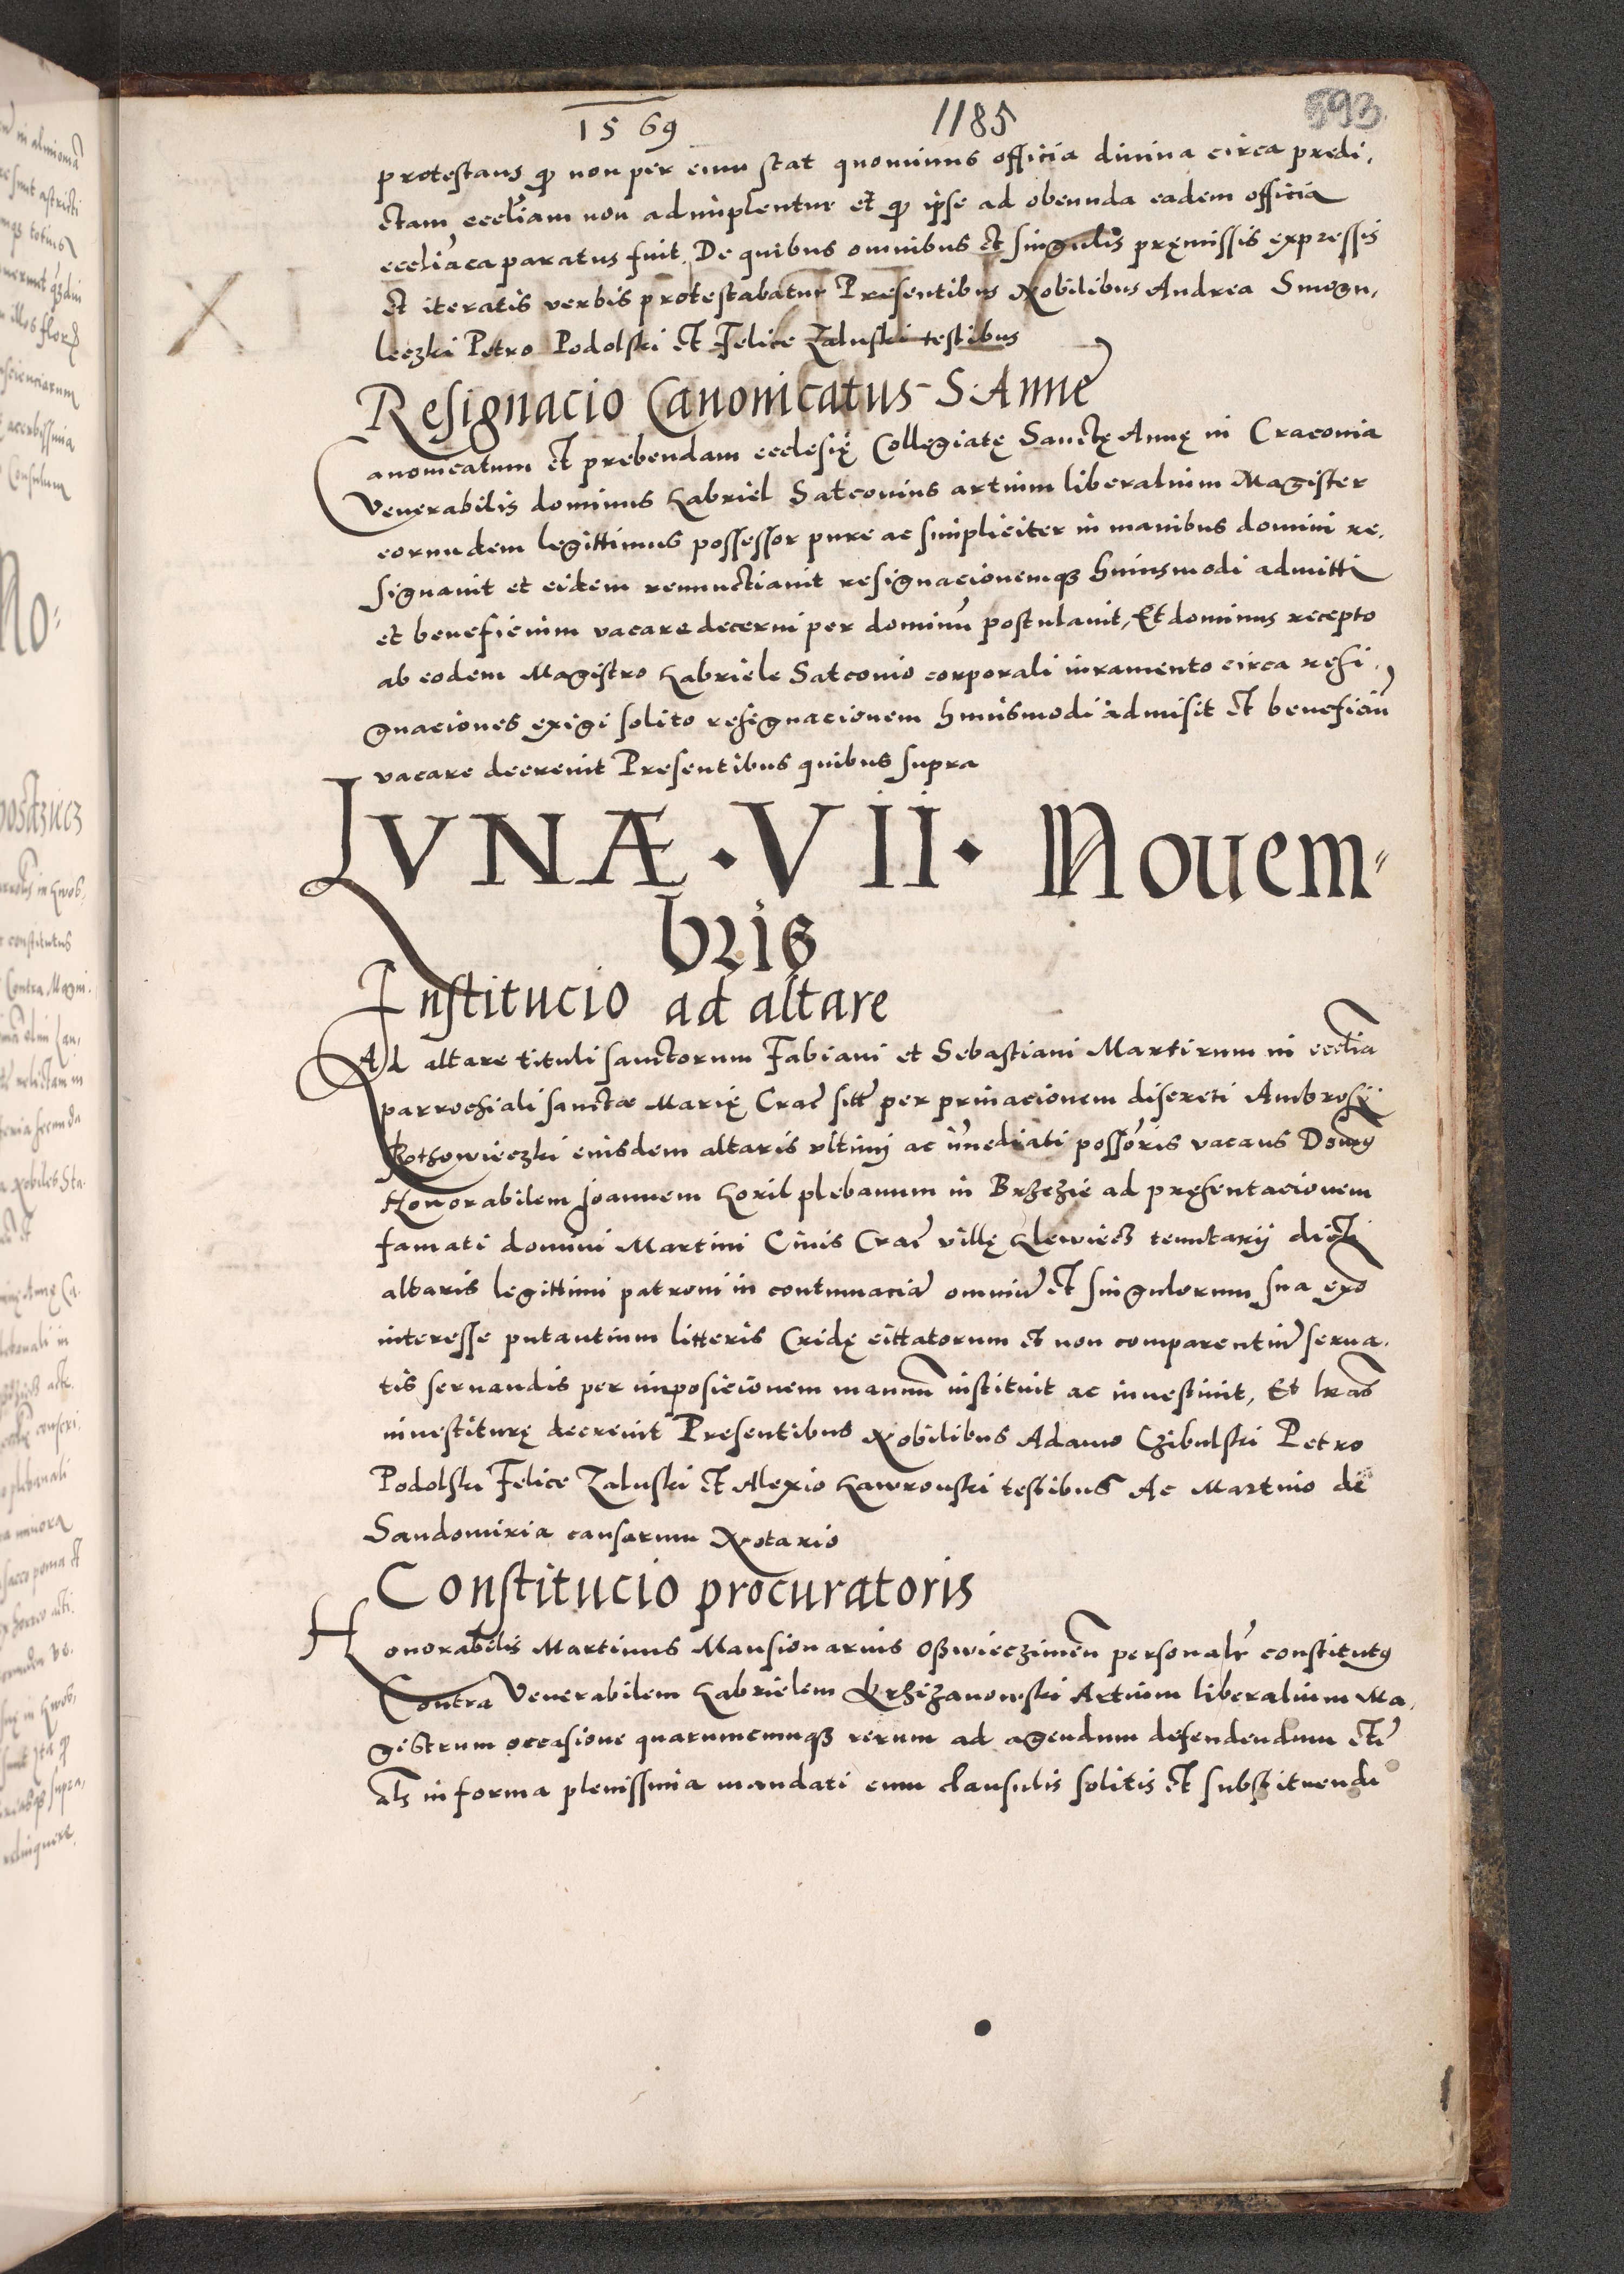 1569 1185 593
protestans q̃ non per eum stat quominus officia divina circa predi,
ctam eccl̃iam non adimplentur et q̃ ipse ad obeunda eadem officia
eccl̃iaca paratus fuit. De quibus omnibus et singulis pręmissis expressis
et iteratis verbis protestabatur Presentibus Nobilibus Andrea Smogu,
leczki Petro Podolski et Felice Zaluski testibus
Resignacio Canonicatus S. Anne
Canonicatum et prebendam ecclesię Collegiatę Sanctę Annę in Cracovia
Venerabilis dominus Gabriel Satconius artium liberalium Magister
eorundem legittimus possessor pure ac simpliciter in manibus domini re,
signavit et eidem renunctiavit resignacionemq3 huiusmodi admitti
et beneficium vacare decerni per dominũ postulavit, Et dominus recepto
ab eodem Magistro Gabriele Satconio corporali iuramento circa resi,
gnaciones exigi solito resignacionem huiusmodi admisit et beneficiũ
vacare decrevit Presentibus quibus supra
LVNÆ · VII · Novem"
bris
Institucio ad altare
Ad altare tituli sanctorum Fabiani et Sebastiani Martirum in eccl̃ia
parrochiali sanctæ Marię Crac̃ sitt̃ per privacionem discreti Ambrosÿ
Rothowieczki eiusdem altaris ultimi ac im̃ediati possõris vacans Domĩg
Honorabilem Joannem Goril plebanum in Brzezie ad pręsentacionem
famati domini Martini Civis Crac̃ villę Glewiecz tenutarij dicti
altaris legittimi patroni in contumaciã omniũ et singulorum sua exõ
interesse putantium litteris Cridę cittatorum et non comparentiũ serva,
tis servandis per imposicionem manuũ instituit ac investivit, Et lr̃as
investiturę decrevit Presentibus Nobilibus Adamo Czibulski Petro
Podolski Felice Zaluski et Alexio Gawronski testibus Ac Martino de
Sandomiria causarum Notario
Constitucio procuratoris
Honorabilis Martinus Mansionarius Oßwieczimeñ personalr̃ constitutg
Contra Venerabilem Gabrielem Krzizanowski Artium liberalium Ma,
gistrum occasione quarumcumq3 rerum ad agendum defendendum etc̃
als in forma plenissima mandati cum clausulis solitis et substituendi